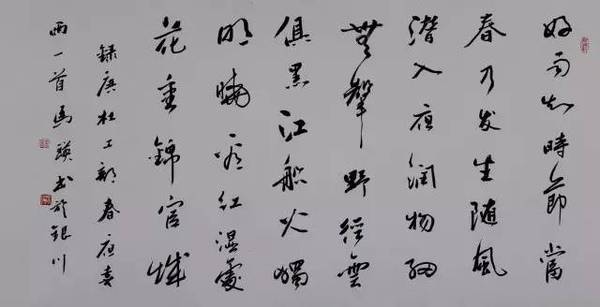 好雨知時節當
春乃发生随風
潜入夜润物细
無聲野徑雲
俱黑江船火獨
明曉看红湿處
花重錦官城
録唐杜工部春夜喜
雨一首馬瑛书於银川